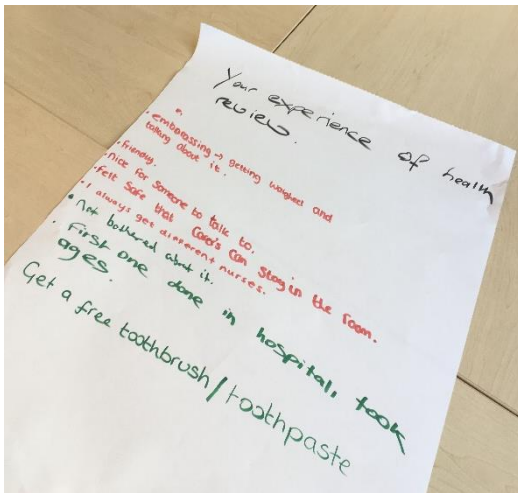 Your experience of health
review.
• embarassing → getting weighed and
talking about it.
• friendly.
• nice for someone to talk to.
• felt safe that Carers can stay in the room.
• I always get different nurses.
• not bothered about it.
• First one done in hospital, took
ages.
Get a free toothbrush/toothpaste